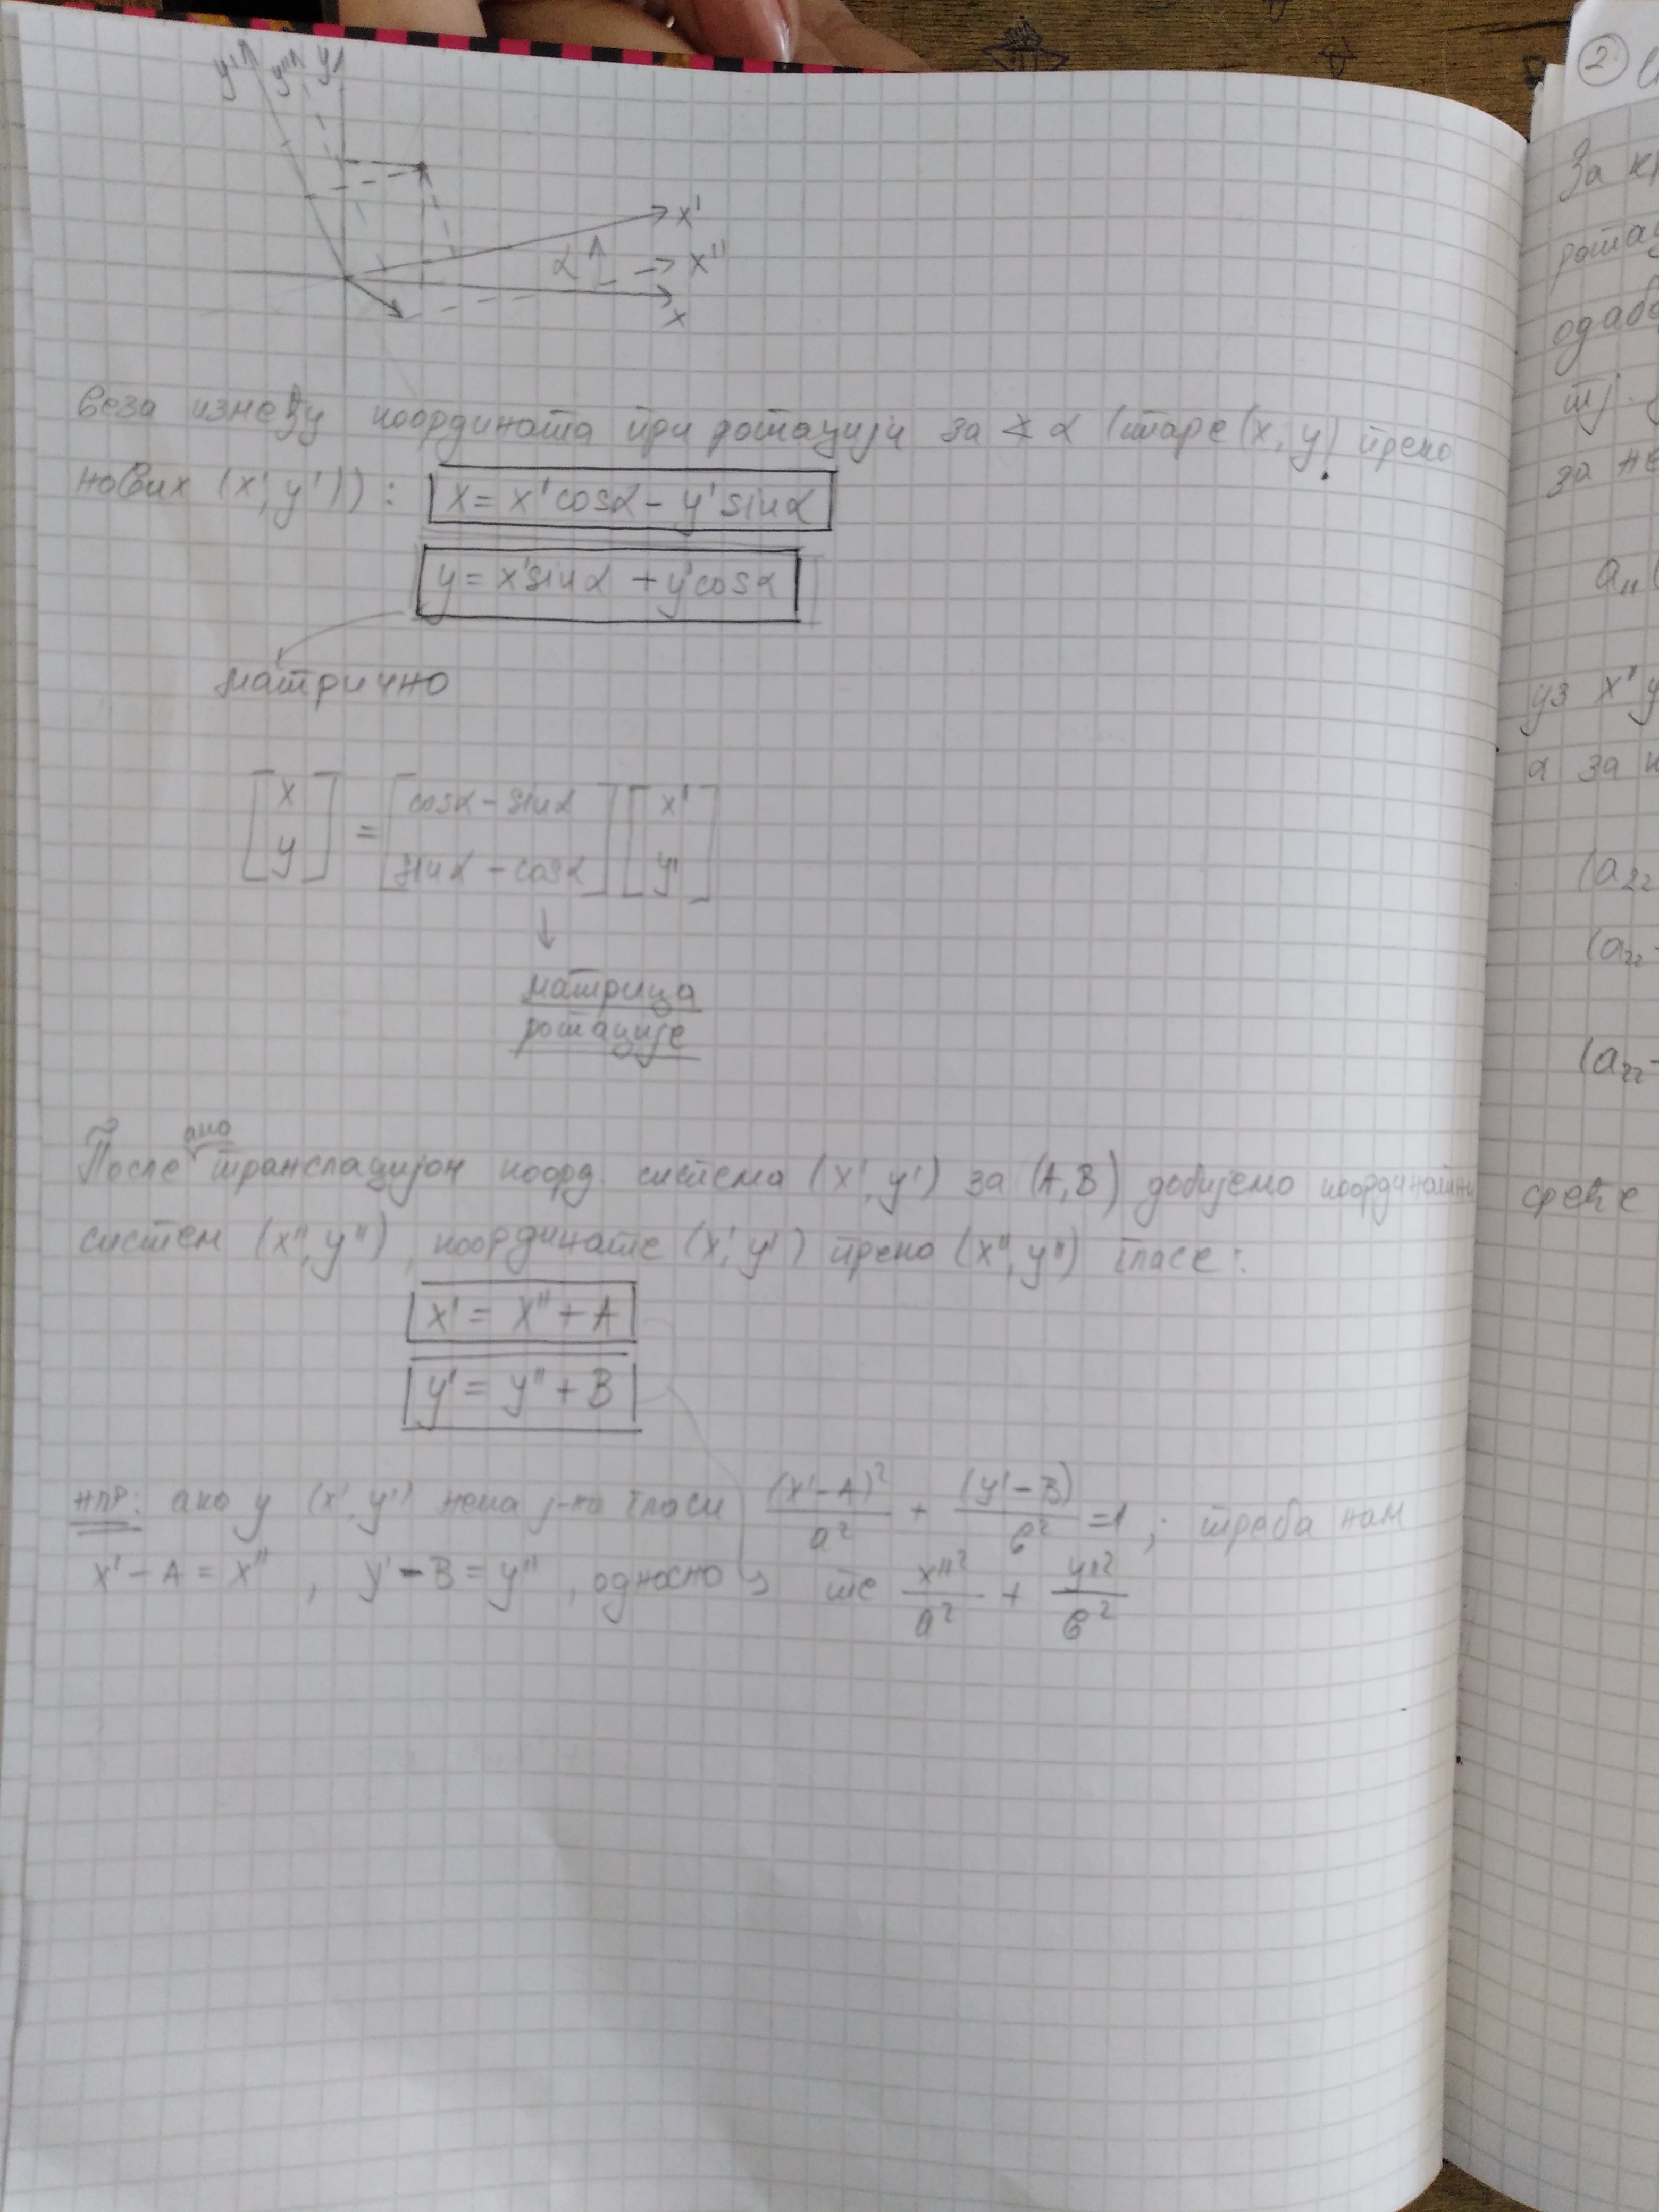 y' y'' y
x'
α x''
x
веза између координата при ротацији за ∢ α (старе (x, y) преко
нових (x', y')): x = x'cosα - y'sinα
y = x'sinα + y'cosα
матрично
[x y] = [cosα - sinα sinα - cosα] [x' y']
↓
матрица
ротације
ако
После транслацијом коорд. система (x', y') за (A, B) добијемо координатни
систем (x'', y''), координате (x', y') преко (x'', y'') гласе:
x' = x'' + A
y' = y'' + B
нпр: ако у (x', y') нека ј-на гласи (x'-A)²/a² + (y'-B)/b² = 1; треба нам
x' - A = x'', y' - B = y'', односно те x''²/a² + y''²/b²
2
За
ротац
одаб
тј.
за не
a₁₁ (
уз x'y
а за
(a₂₂
(a₂₂-
(a₂₂-
среће